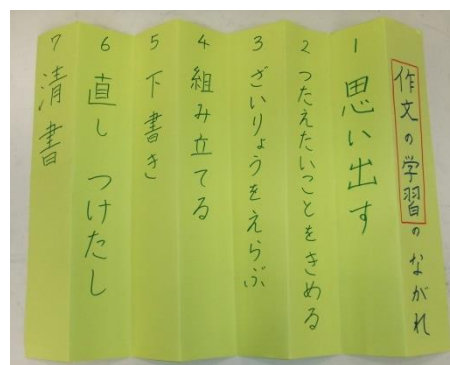 作文の学習のながれ
1 思い出す
2 つたえたいことをきめる
3 ざいりょうをえらぶ
4 組み立てる
5 下書き
6 直し つけたし
7 清書